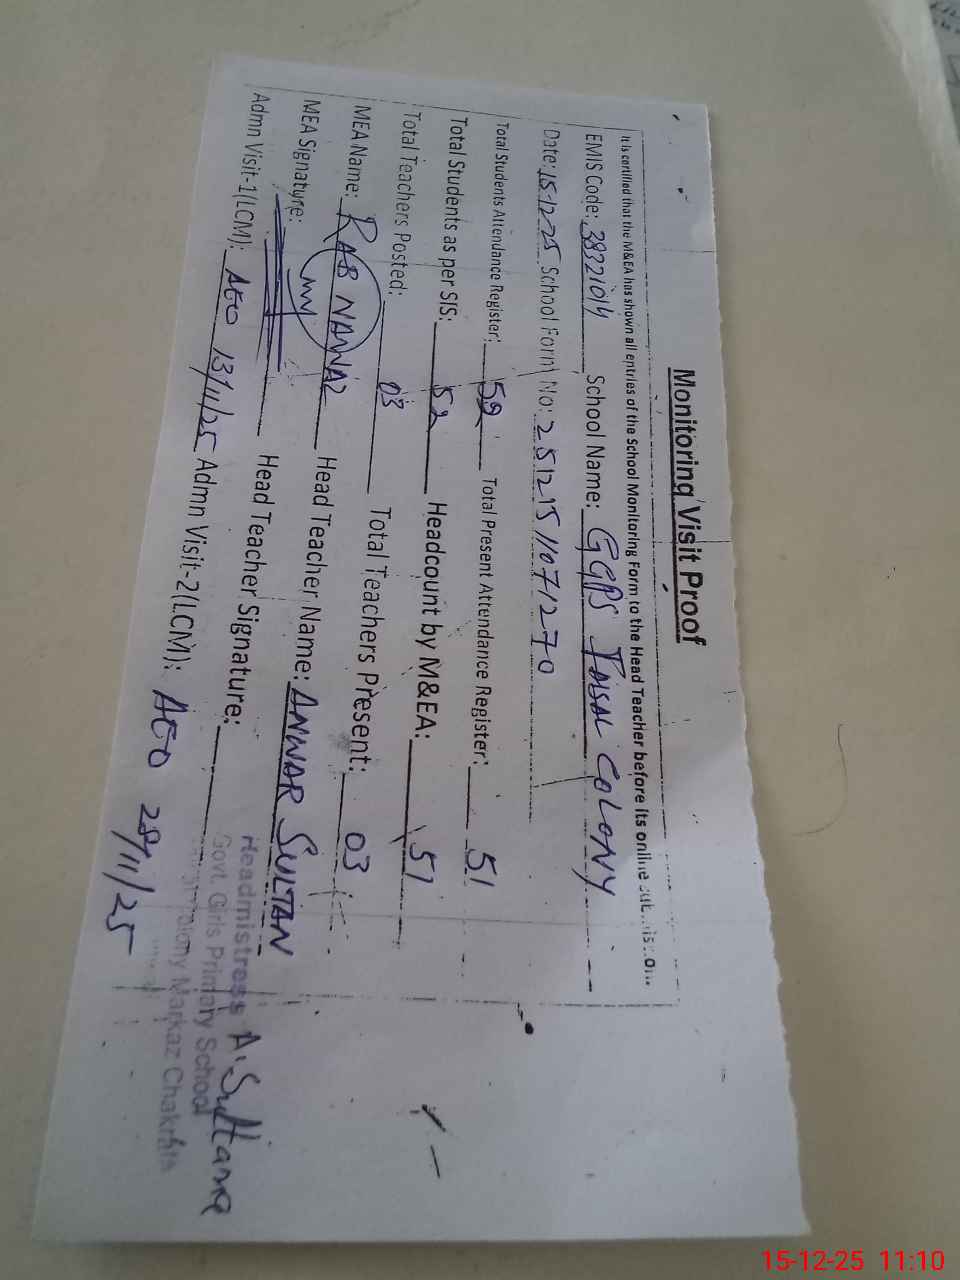 Monitoring Visit Proof
It is certified that the M&EA has shown all entries of the School Monitoring Form to the Head Teacher before its online
EMIS Code: School Name: GGPS Faisal Colony
Date: 15-12-25 School Form No: 25121511071270
Total Students Attendance Register: 52 Total Present Attendance Register: 51
Total Students as per SIS: 52 Headcount by M&EA: 51
Total Teachers Posted: 03 Total Teachers Present: 03
MEA Name: RAB NAWAZ Head Teacher Name: ANWAR SULTAN
MEA Signature: Head Teacher Signature: A. Sultana
Admn Visit-1(LCM): AEO 13/11/25 Admn Visit-2(LCM): AEO 28/11/25
Headmistress
Govt. Girls Primary School
Colony Markaz
15-12-25 11:10